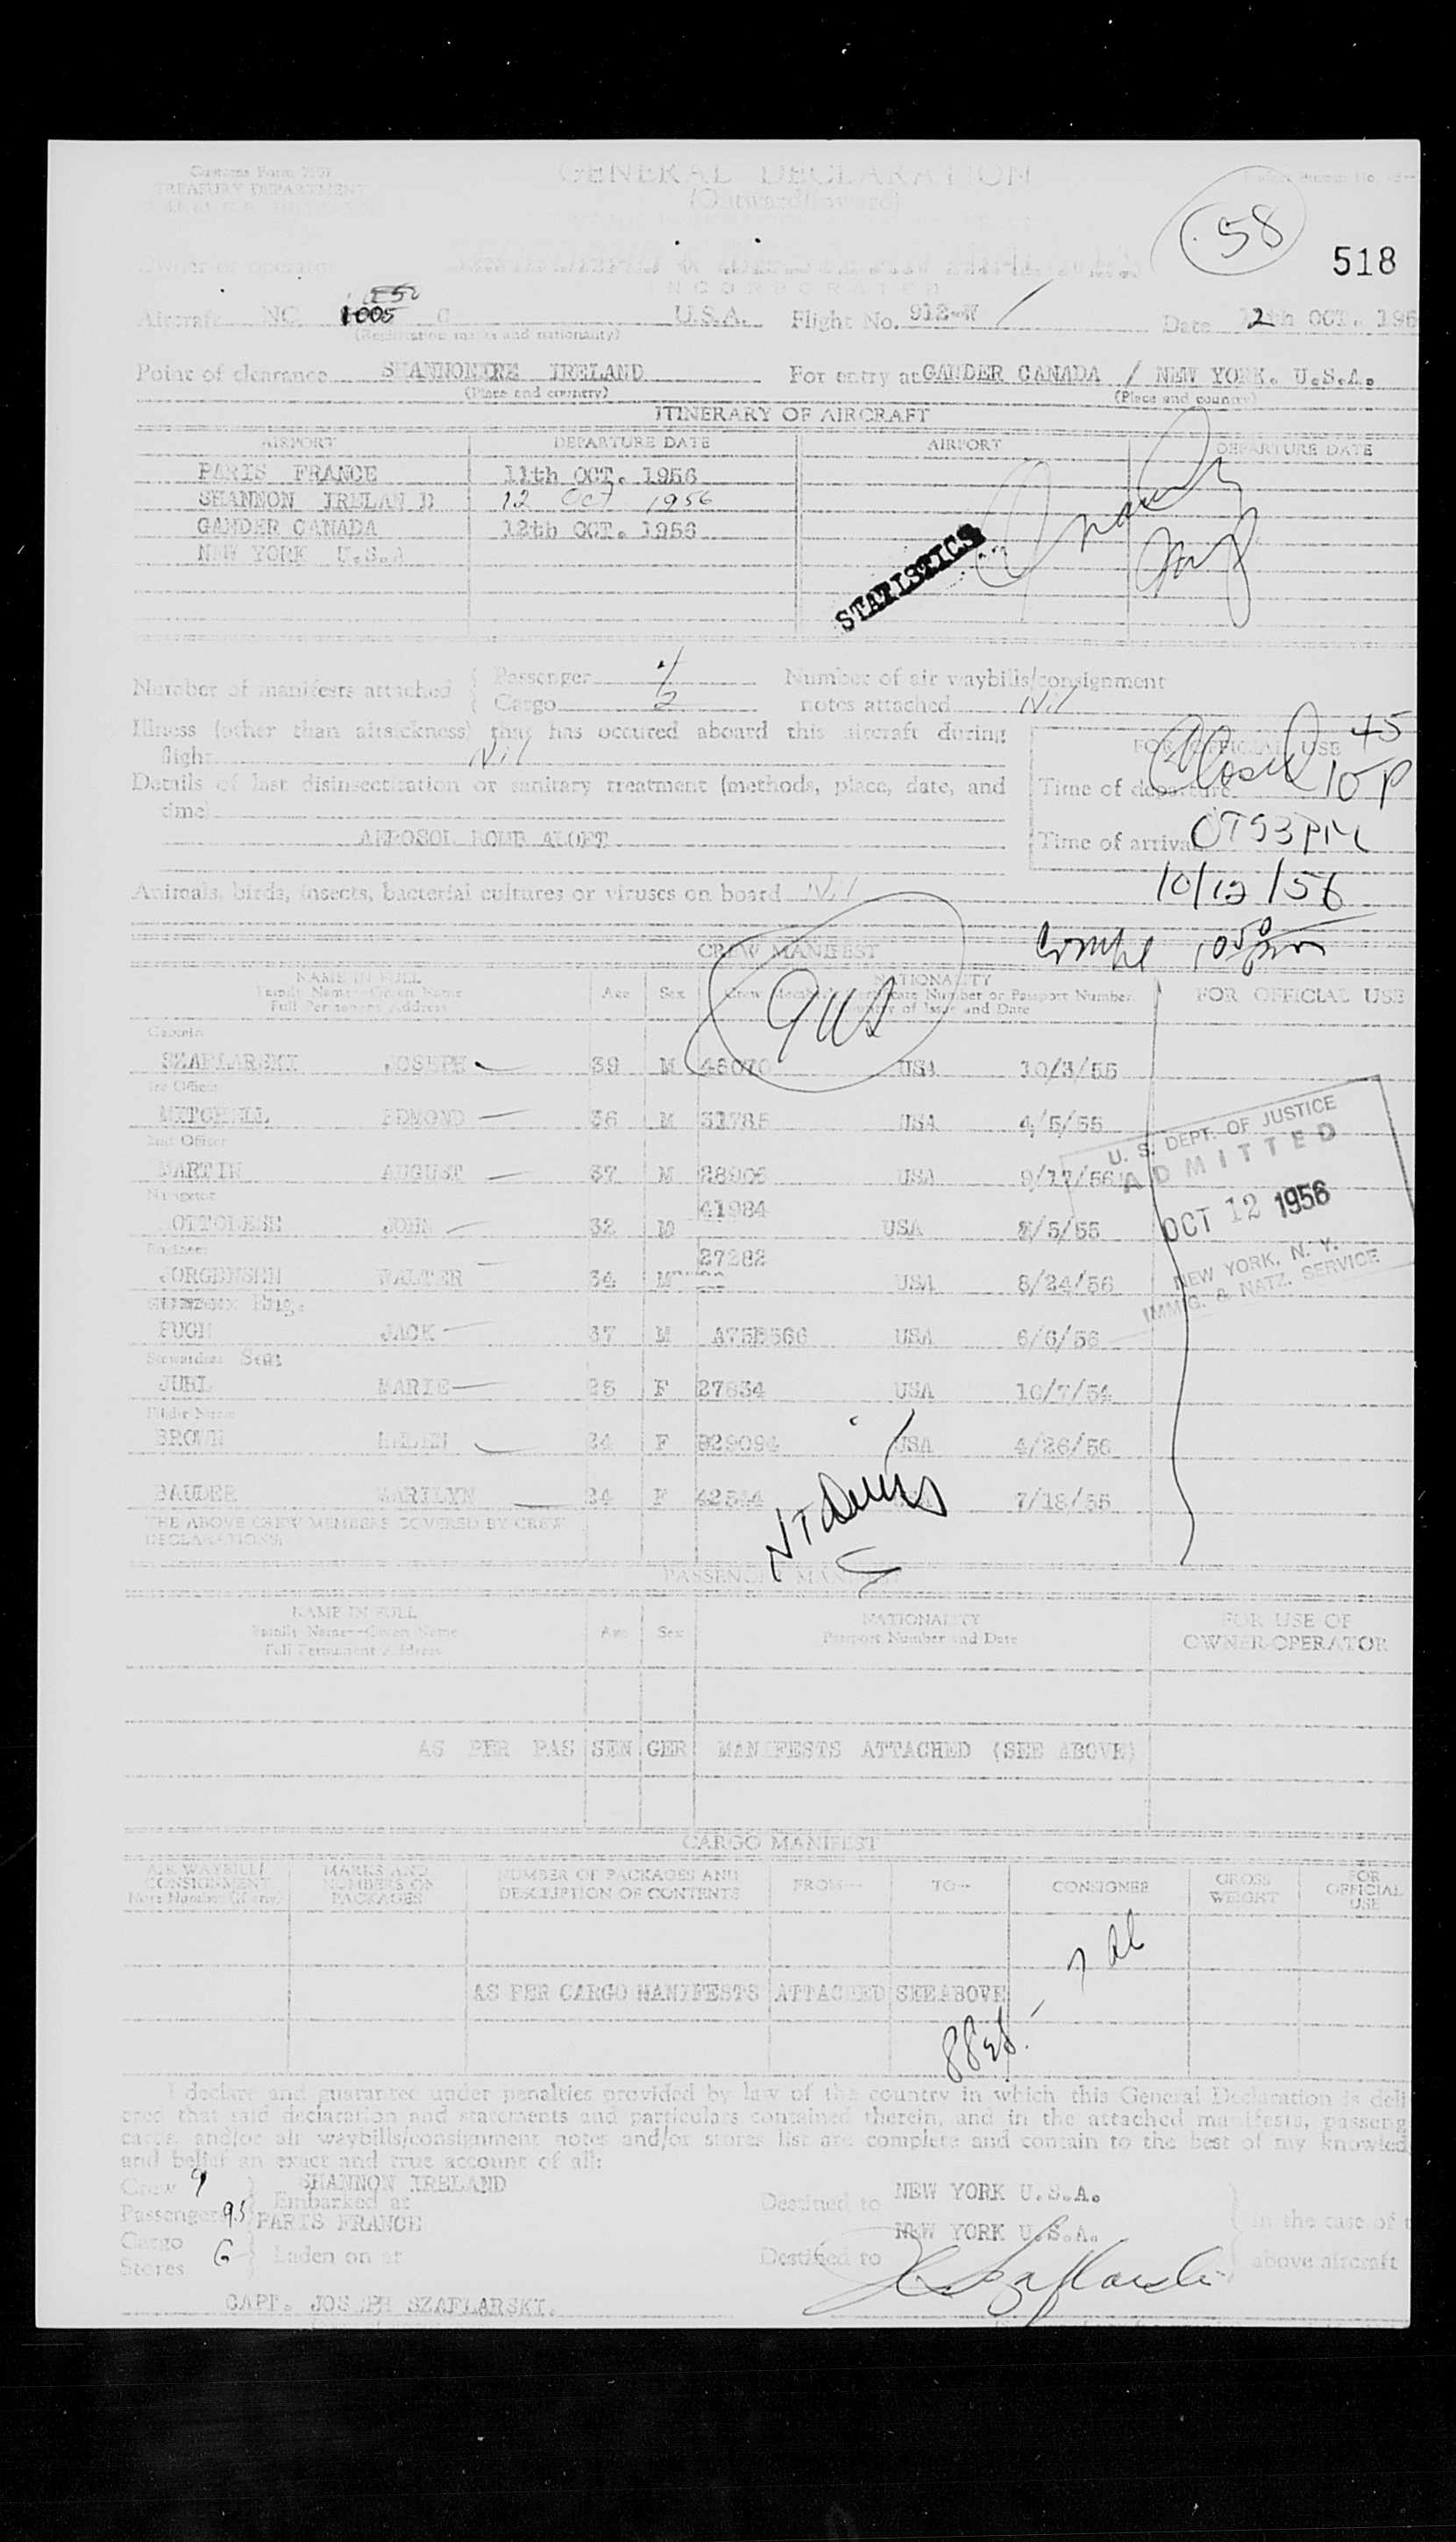 Customs Form 7507
TREASURY DEPARTMENT
GENERAL DECLARATION
(Outward/Inward)
58
518
Owner or operator
INCORPORATED
Aircraft NC 1005 C U.S.A. Flight No. 912-W Date 12th OCT. 195
(Registration marks and nationality)
Point of clearance SHANNON IRELAND For entry at GANDER CANADA / NEW YORK. U.S.A.
(Place and country) (Place and country)
ITINERARY OF AIRCRAFT
AIRPORT DEPARTURE DATE AIRPORT DEPARTURE DATE
PARIS FRANCE 11th OCT. 1956
SHANNON IRELAND 12 Oct 1956
GANDER CANADA 12th OCT. 1956
NEW YORK U.S.A
STATISTICS
Number of manifests attached { Passenger
Cargo 2
Number of air waybills/consignment
notes attached Nil
Illness (other than airsickness) that has occured aboard this aircraft during
flight Nil
Details of last disinsectization or sanitary treatment (methods, place, date, and
time)
AEROSOL BOMB ALOFT
FOR OFFICIAL USE
Closed 1045 P
Time of departure
Time of arrival 0753PM
10/12/56
Animals, birds, insects, bacterial cultures or viruses on board Nil
CREW MANIFEST
NAME IN FULL
Family Name--Given Name
Full Permanent Address
Age Sex
NATIONALITY
Crew Member's Certificate Number or Passport Number
Country of Issue and Date
FOR OFFICIAL USE
Captain
SZAFLARSKI JOSEPH 39 M 48070 USA 10/3/55
1st Officer
MITCHELL EDMOND 36 M 31785 USA 4/5/55
2nd Officer
MARTIN AUGUST 37 M 28906 USA 9/17/56
Navigator
OTTOLESE JOHN 32 M 41984 USA /5/55
Engineer
JORGENSEN WALTER 34 M 27282 USA 8/24/56
Eng.
PUGH JACK 37 M A755566 USA 6/6/56
Stewardess
JUHL MARIE 25 F 27634 USA 10/7/54
Flight Nurse
BROWN HELEN 24 F 929094 USA 4/26/56
BAUDER MARILYN 24 F 42544 USA 7/18/55
THE ABOVE CREW MEMBERS COVERED BY CREW
DECLARATIONS.
U. S. DEPT. OF JUSTICE
ADMITTED
OCT 12 1956
NEW YORK, N. Y.
IMMIG. & NATZ. SERVICE
PASSENGER MANIFEST
NAME IN FULL
Family Name--Given Name
Full Permanent Address
Age Sex
NATIONALITY
Passport Number and Date
FOR USE OF
OWNER-OPERATOR
AS PER PASSENGER MANIFESTS ATTACHED (SEE ABOVE)
CARGO MANIFEST
AIR WAYBILL/
CONSIGNMENT
Note Number (if any)
MARKS AND
NUMBERS ON
PACKAGES
NUMBER OF PACKAGES AND
DESCRIPTION OF CONTENTS
FROM-- TO-- CONSIGNEE
GROSS
WEIGHT
FOR
OFFICIAL
USE
AS PER CARGO MANIFESTS ATTACHED SEE ABOVE
I declare and guarantee under penalties provided by law of the country in which this General Declaration is deli
ered that said declaration and statements and particulars contained therein, and in the attached manifests, passeng
cards, and/or air waybills/consignment notes and/or stores list are complete and contain to the best of my knowled
and belief an exact and true account of all:
Crew 9 } SHANNON IRELAND
Passengers 95 } Embarked at
PARIS FRANCE
Cargo
Stores G } Laden on at
Destined to NEW YORK U.S.A.
NEW YORK U.S.A.
Destined to
In the case of t
above aircraft
CAPT. JOSEPH SZAFLARSKI.